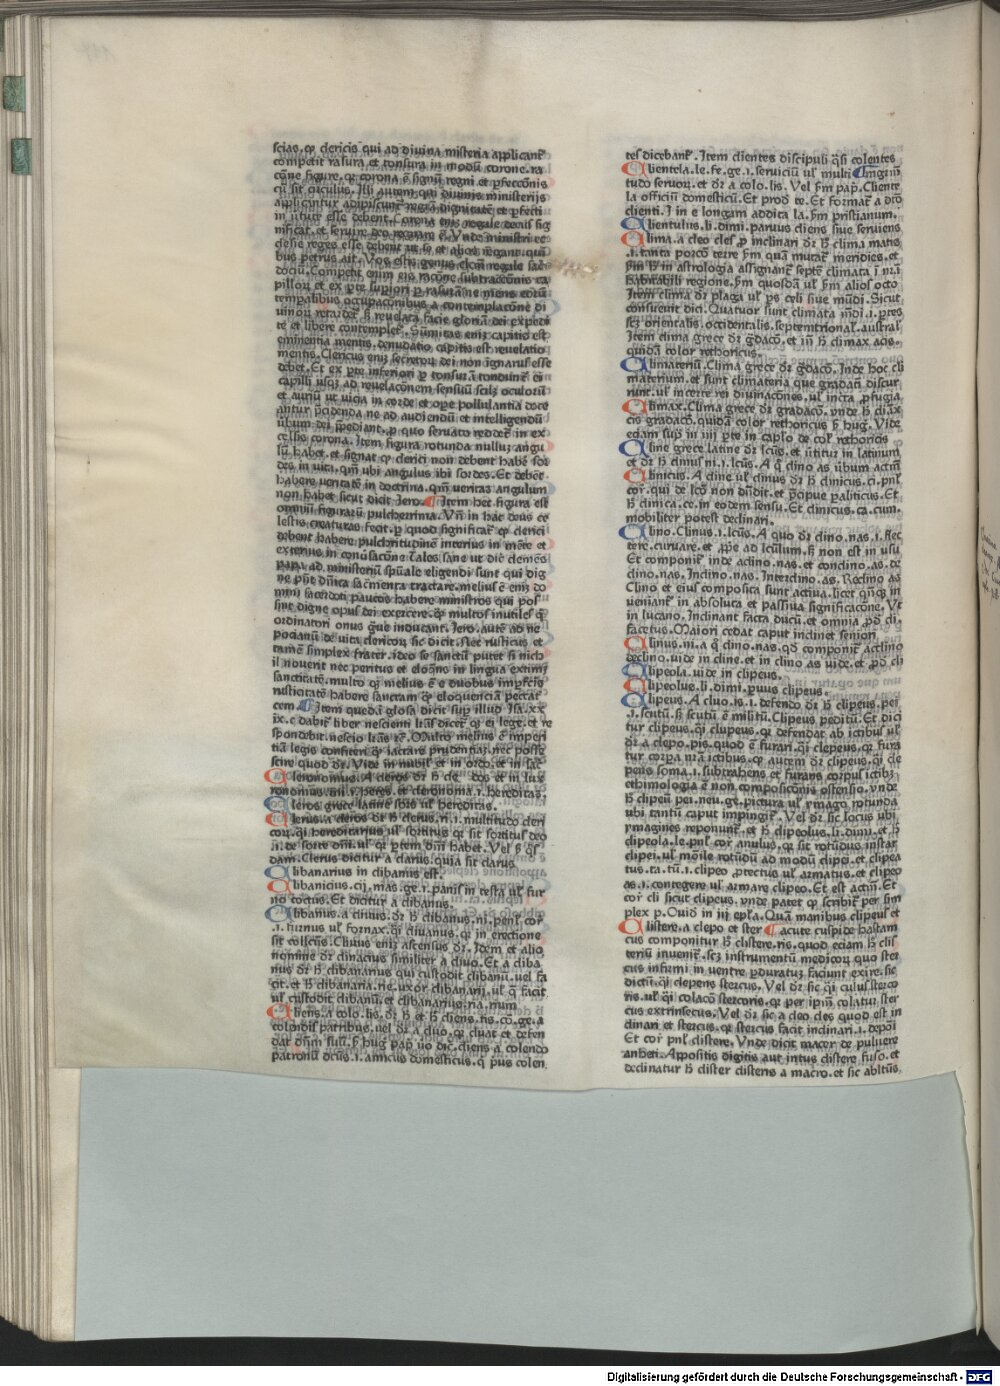 scias. ꝙ clericis qui ad diuina misteria applicant᷑
competit rasura et tonsura in modū corone. ra
cōne figure. qꝛ corona ē signū regni et ꝑfeccōnis
cū sit circulus. Illi autem qui diuinis ministerijs
applicantur adipiscunt᷑ regiā dignitatē et ꝑfecti
in v̄tute esse debent. Corona enī regale decus sig
nificat. et seruire deo regnare ē. Vnde ministri ec
clesie reges esse debent ut se et alios regant. quā
bus petrus ait. Vos estis genus elcm̄ regale sac̄
dociū. Competit enim eis racōne subtraccōnis ca
pilloꝝ et ex ꝑte supiori ꝑ rasurā ne mens eoꝝ
tempalibus occupaconibus a contemplacōne di
uinoꝝ retardet᷑ sꝫ reuelata facie gloriā dei expedi
te et libere contemplet᷑. Sūmitas enī capitis est
eminentia mentis. denudatio capitis est reuelatio
mentis. Clericus enī secretoꝝ dei non ignarus esse
debet. Et ex ꝑte inferiori ꝑ tonsurā tondunt᷑ ei
capilli usqꝫ ad reuelacōnem sensuū scilꝫ oculoꝝ
et auriū ut vicia in corde et ope pollulantia doce
antur p̄cidenda ne ad audiendū et intelligendū
ūbum dei īpediant᷑. ꝑ quo seruato reddet᷑ in ex
celsis corona. Item figura rotunda nulluꝫ angu
lū habet. et signat ꝙ clerici non debent habē sor
des in vita. qm̄ ubi angulus ibi sordes. Et debēt
habere veritatē in doctrina. qm̄ veritas angulum
non habet sicut dicit Jero. Item hec figura est
omniū figuraꝝ pulcherrima. Vn̄ in hac deus ce
lestis creaturas fecit. ꝑ quod significat᷑ ꝙ clerici
debent habere pulchritudinē interius in mēte et
exterius in conūsacōne Tales sane ut dic̄ clemēs
papa ad ministeriū spūale eligendi sunt qui dig
ne p̄nt dn̄ica sac̄menta tractare. melius ē eniꝫ do
mini sacerdoti paucos habere ministros qui pos
sint digne opus dei exercere. ꝙ multos inutiles ꝗ̄
ordinatori onus gue inducant. Jero. autē ad ne
pocianū de vita clericoꝝ sic dicit. Nec rusticus et
tamē simplex frater. ideo se sanctū putet si nich
il nouerit nec peritus et eloq̄ns in lingua extimꝫ
sanctitatē. multo qͥ melius ē e duobus imꝑfcis
rusticitatē habere sanctam ꝙ eloquenciā peccat᷑
cem. Item quedā glosa dicit suꝑ illud Isa. xx
ix. e dabit᷑ liber nescienti lr̄as dicet᷑ qꝫ ei lege. et re
spondebit. nescio lr̄as ⁊c̄. Multo melius ē imperi
tiā legis confiteri ꝙ iactare prudentiaꝫ. nec posse
scire quod dr̄. Vide in nubil᷑ et in ordo. et in sac᷑
Cleronomus. A cleros dr̄ hͦ cle
Cleros grece. latine sors ul᷑ hereditas.
Clerus. a cleros dr̄ hͨ clerus. ri. i. multitudo cleri
coꝝ. qꝛ hereditarius ul᷑ sortitus qꝛ sit sortitus deo
.i. de sorte dn̄i. ul᷑ qꝛ ꝑtem dn̄i habet. Vel ẜm qͦs
dam. Clerus dicitur a clarus. quia sit clarus
Clibanarius in clibanus est.
Clibanicius. cij. mas. ge. i. panis in testa ul᷑ fur
no coctus. Et dicitur a clibanus.
Clibanus. a cliuus. dr̄ hͨ clibanus. ni. penl᷑. cor̄
.i. furnus ul᷑ fornax. qͣi cliuanus. qꝛ in erectione
sit collectus. Cliuus enī ascensus dr̄. Item et alio
nomine dr̄ clinacius similiter a cliuo. Et a cliba
nus dr̄ hͨ clibanarius qui custodit clibanū. uel fa
cit. et hͨ clibanaria. rie. uxor clibanarij. ul᷑ q̄ facit
ul᷑ custodit clibanū. et clibanarius. ria. rium
Cliens. a colo. lis. dr̄ hͨ et hͨ cliens. tis. cō. ge. a
colendis patribus. uel dr̄ a cluo. qꝛ cluat et defen
dat dn̄m suū. ẜm hug᷑. pap̄. uo dic̄. cliens a colendo
patronū dcūs .i. amicus domesticus. q̄ prius colen
tes dicebant᷑. Item clientes discipuli qͣsi colentes
Clientela. le. fe. ge. i. seruiciū ul᷑ multi
tudo seruoꝝ. et dr̄ a colo. lis. Vel ẜm pap̄. Cliente
la officiū domesticū. Et prod᷑ te. Et format᷑ a dtō
clienti. I in e longam addita la. ẜm pristianum.
Clientulus. li. dimi. paruus cliens siue seruiens.
Clima. a cleo cles ꝓ inclinari dr̄ hͨ clima matis
.i. tanta porcō terre ẜm quā mutat᷑ meridies. et
ẜm hͨ in astrologia assignant᷑ septē climata ī nr̄i
habitabili regione. ẜm quosdā ul᷑ ẜm alios octo.
Item clima dr̄ plaga ul᷑ ꝑs celi siue mūdi. Sicut
consueuit dici. Quatuor sunt climata mūdi .i. ꝑtes
scꝫ orientalis. occidentalis. septemtrional᷑. austral᷑
Item clima grece dr̄ gͣdacō. et in̄ hͨ climax acis.
quidā color rethoricus.
Climateriū. Clima grece dr̄ gͣdacō. Inde hoc cli
materium. et sunt climateria que gradati discur
runt. ul᷑ incerte rei diuinacōnes. ul᷑ incta ꝑfugia
Climax. Clima grece dr̄ gradacō. vnde hͨ cliax
cis gradacō. quidā color rethoricus ẜm hug᷑. Vide
eciam sup̄ in iij ꝑte in caplo de col᷑ rethoricis
Cline grece latine dr̄ lcūs. et ūtitur in latinum
et dr̄ hͨ clinus ni. i. lcūs. A q̄ clino as ūbum actiū
Clinicus. A cline ul᷑ clinus dr̄ hͨ clinicus. ci. pnl᷑
cor̄. qui de lcō non dn̄dit. et p̄cipue ꝑaliticus. Et
hͨ clinica. ce. in eodem sensu. Et clinicus. ca. cum.
mobiliter potest declinari.
Clino. Clinus .i. lcūs. A quo dr̄ clino. nas. i. flec
tere. curuare. et ꝓpe ad lcūlum. sꝫ non est in usu
Et componit᷑ inde aclino. nas. et conclino. as. de
clino. nas. Inclino. nas. Interclino. as. Reclino as
Clino et eius composita sunt actiua. licet qn̄qꝫ in
ueniant᷑ in absoluta et passiua significacōne. Vt
in lucano. Inclinant facta ducū. et omnia ꝓd᷑ cli.
facetus. Maiori cedat caput inclinet seniori
Clinus. ni. a q̄ clino. nas. qd᷑ componit᷑ acclino
declino. vide in cline. et in clino as uide. et ꝓd᷑ cli
Clipeola. uide in clipeus.
Clipeolus. li. dimi. ꝑuus clipeus.
Clipeus. A cluo. is. i. defendo dr̄ hͨ clipeus. pei
.i. scutū. sꝫ scutū ē militū. Clipeus peditū. Et dici
tur clipeus. qͣi clupeus. qꝛ defendat ab ictibus ul᷑
dr̄ a clepo. pis. quod ē furari. qͣi clepeus. qꝛ fura
tur corꝑa nr̄a ictibus. qꝛ autem dr̄ clipeus. qͣi cle
pens soma .i. subtrahens et furans corpus ictibꝫ
ethimologia ē non composiconis ostensio. vnde
hͨ clipeū pei. neu. ge. pictura ul᷑ ymago rotunda
ubi tantū caput impingit᷑. Vel dr̄ sic locus ubi
ymagines reponunt᷑. et hͨ clipeolus. li. dimi. et hͨ
clipeola. le. pnl᷑ cor̄ anulus. qꝛ sit rotūdus instar
clipei. ul᷑ monile rotūdū ad modū clipei. et clipea
tus. ta. tū. i. clipeo ꝓtectus ul᷑ armatus. et clipeo
as. i. contegere ul᷑ armare clipeo. Et est actiū. Et
cor̄ cli sicut clipeus. vnde patet ꝙ scribit᷑ per sim
plex p. Ouid᷑ in iij epl̄a. Quā manibus clipeus et
Clistere. a clepo et ster acute cuspide hastam
cus componitur hͨ clistere. ris. quod eciam hͨ clis
teriū inuenit᷑. scꝫ instrumentū medicoꝝ quo ster
cus infirmi in uentre ꝑduratuꝫ faciunt exire. sic
dictū. qͣi clepens stercus. Vel dr̄ sic qͣi culus sterco
ris. ul᷑ qͣi colacō stercoris. qꝛ per ip̄m colatur ster
cus extrinsecus. Vel dr̄ sic a cleo cles quod est in
clinari et stercus. qꝛ stercus facit inclinari .i. depōi
Et cor̄ pnl᷑ clistere. Vnde dicit macer de puluere
anheti. Appositis digitis aut intus clistere fuso. et
declinatur hͨ clister clisteris a macro. et sic abltūs.
Digitalisierung gefördert durch die Deutsche Forschungsgemeinschaft - DFG